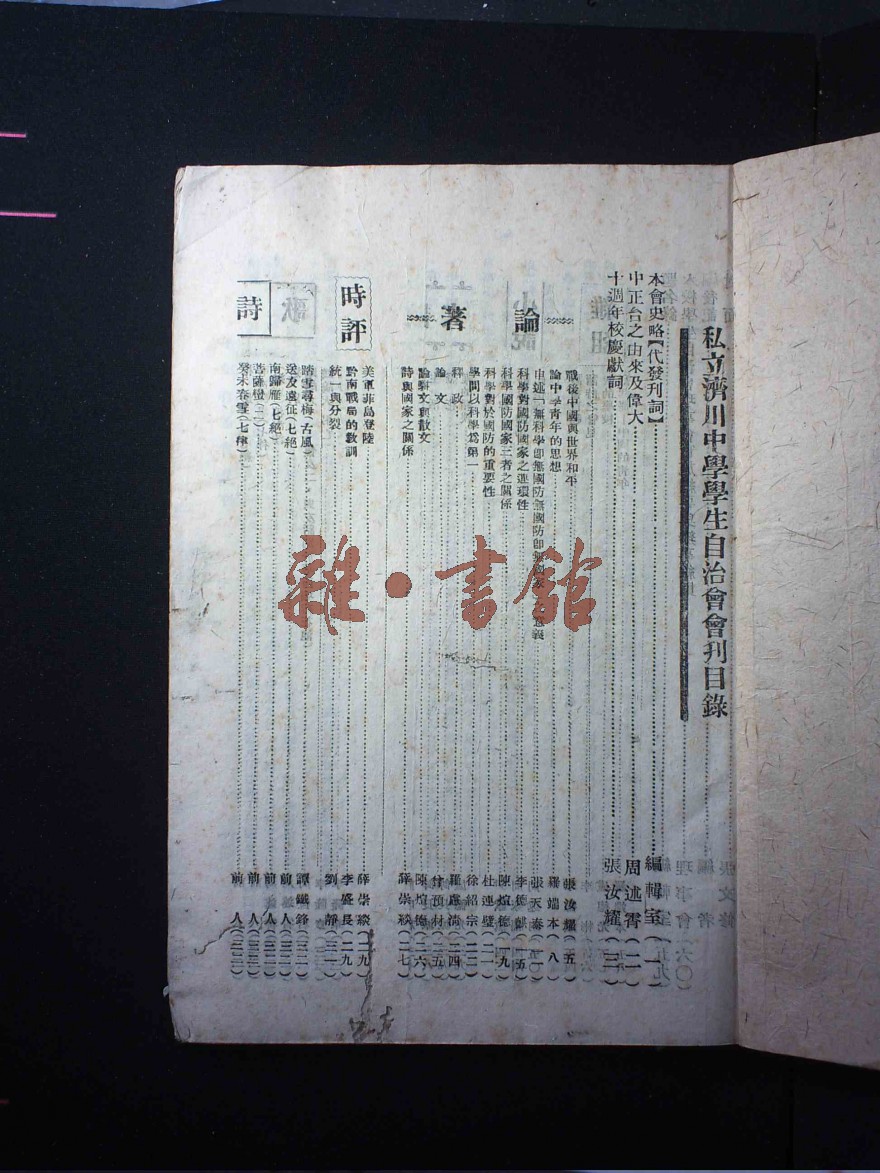 私立濟川中學學生自治會會刊目錄
本會史略【代發刊詞】 編輯室（一）
中正台之由來及偉大 周述霄（二）
十週年校慶獻詞 張汝耀（三）
論著
戰後中國與世界和平 張汝耀（五）
論中學靑年的思想 羅端本（八）
申述「無科學即無國防無國防即無國家 意義 張天壽
科學對國防國家之連環性 李德麒（一五）
科學國防國家三者之關係 陳煊德（一九）
科學對於國防的重要性 杜連璧（二一）
學問以科學爲第一 徐紹宗（二三）
釋政 羅應淸（二四）
論文 曾預材（二五）
論駢文與散文 陳煊德（二六）
詩與國家之關係 薛崇綏（二七）
時評
美軍菲島登陸 薛崇綏（二九）
黔南戰局的敎訓 李盛長（二九）
統一與分裂 劉靜（三一）
詩
踏雪尋梅（古風） 譚鐵鋒（三二）
送友遠征（七絕） 前人（三二）
南歸雁（七絕） 前人（三二）
菩薩蠻（二） 前人（三三）
癸未春雪（七律） 前人（三三）
雜·書館